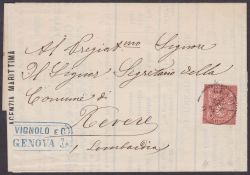 AGENZIA MARITTIMA
Al Pregiat.mo Signore
Il Signor Segretario della
Comune di
Revere
Lombardia
VIGNOLO e C.
GENOVA